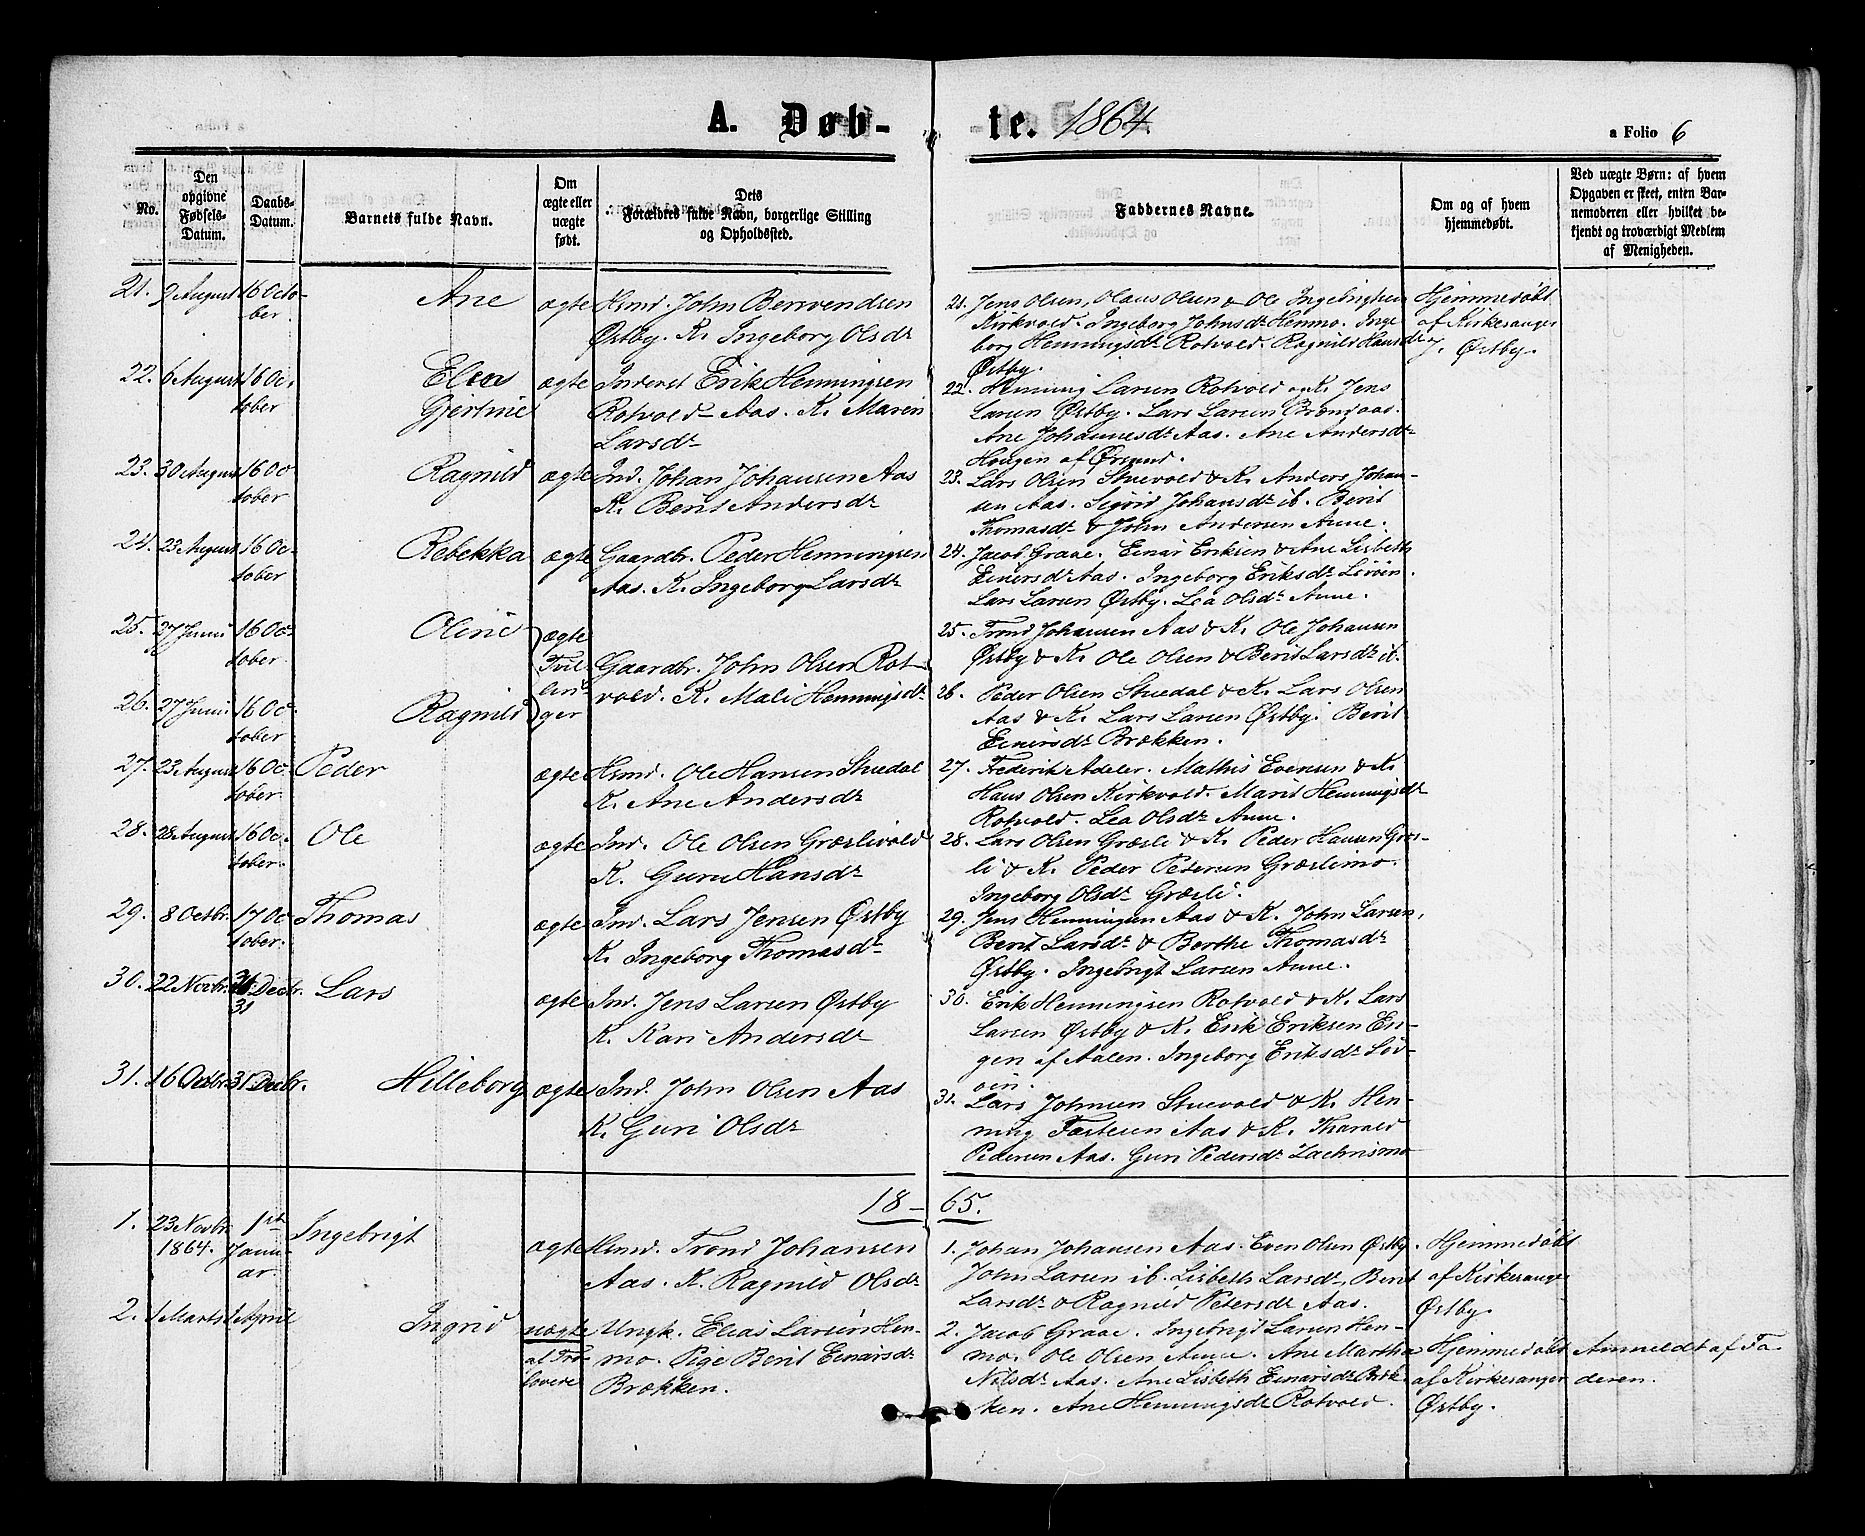 A. Døb-
te. 1864.
a Folio 6
No.
Den opgivne Fødsels-Datum.
Daabs-Datum.
Barnets fulde Navn.
Om ægte eller uægte født.
Dets Forældres fulde Navn, borgerlige Stilling og Opholdssted.
Faddernes Navne.
Om og af hvem hjemmedøbt.
Ved uægte Børn: af hvem Opgaven er skeet, enten Barnemoderen eller hvilket bekjendt og troværdigt Medlem af Menigheden.
21. 9 August 16 Octo-
ber
Ane
ægte Hsmd. John Berrvendsen
Østby. K. Ingeborg Olsdr
21. Jens Olsen, Olaus Olsen & Ole Ingebrigtsen
Kirkvold. Ingeborg Johnsdr Henmo. Inge
borg Hemmingsdr Rotvold. Ragnild Hansdr
Østby.
Hjemmedøbt
af Kirkesanger
J. Østby.
22. 6 August 16 Oc-
tober
Elen
Gjertine
ægte Inderst Erik Henningsen
Rotvold - Aas. K. Maren
Larsdr
22. Henning Larsen Rotvold og K. Jens
Larsen Østby. Lars Larsen
Ane Johannesdr Aas. Ane Andersdr
Hougen af
23. 30 August 16 Oc-
tober
Ragnild
ægte Ind. Johan Johansen Aas
K. Berit Andersdr
23. Lars Olsen Stuevold & K. Anders Johan-
sen Aas. Sigrid Johansdr ib. Berit
Thomasdr & John Andersen Aune.
24. 23 August 16 Oc-
tober
Rebekka
ægte Gaardbr. Peder Henningsen
Aas. K. Ingeborg Larsdr
24. Jacob Graae. Einar Eriksen & Ane Lisbeth
Einersdr Aas. Ingeborg Eriksdr Løvøen
Lars Larsen Østby. Lea Olsdr Aune.
25. 27 Juni 16 Oc-
tober
Oline
ægte
Tvil-
lin-
ger
Gaardbr. John Olsen Rot-
vold. K. Mali Hemmingsdr
25. Trond Johansen Aas & K. Ole Johansen
Østby & K. Ole Olsen & Berit Larsdr ib.
26. 27 Juni 16 Oc-
tober
Ragnild
26. Peder Olsen Stuedal & K. Lars Olsen
Aas & K. Lars Larsen Østby. Berit
Einersdr Brækken.
27. 23 August 16 Oc-
tober.
Peder
ægte Hsmd. Ole Hansen Stuedal
K. Ane Andersdr
27. Frederik Adeler. Mathis Evensen & K.
Hans Olsen Kirkvold. Marit Hemmingsdr
Rotvold. Lea Olsdr Aune.
28. 28 August 16 Oc-
tober.
Ole
ægte Ind. Ole Olsen Græslivold
K. Guru Hansdr
28. Lars Olsen Græsli & K. Peder Hansen Græs-
li & K. Peder Petersen Græslimo.
Ingeborg Olsdr Græsli.
29. 8 Octbr. 17 Oc
tober.
Thomas
ægte Ind. Lars Jensen Østby
K. Ingeborg Thomasdr
29. Jens Henningsen Aas & K. John Larsen,
Berit Larsdr & Berthe Thomasdr
Østby. Ingebrigt Larsen Aune.
30. 22 Novbr. Decbr.
31
Lars
ægte Ind. Jens Larsen Østby
K. Kari Andersdr
30. Erik Henningsen Rotvold & K. Lars
Larsen Østby & K. Erik Eriksen En-
gen af Aalen. Ingeborg Eriksdr Løv-
øen.
31. 16 Octbr. 31 Decbr.
Hilleborg
ægte Ind. John Olsen Aas
K. Guri Olsdr
31. Lars Johnsen Stuevold & K. Hen-
ning Fastesen Aas & K. Tharald
Pedersen Aas. Guri Pedersdr Zachrismo
18-65.
1. 23 Novbr. 1ste
1864. Janu-
ar.
Ingebrigt
ægte Hsmd. Trond Johansen
Aas. K. Ragnild Olsdr
1. Johan Johansen Aas. Even Olsen Østby.
John Larsen ib. Lisbeth Larsdr, Berit
Larsdr & Ragnild Petersdr Aas.
Hjemmedøbt
af Kirkesanger
Østby.
2. 1 Marts 1 April
Ingrid
uægte
af Tro-
lovede
Ungk. Elias Larsen Hen-
mo. Pige Berit Einarsdr
Brækken.
2. Jacob Graae. Ingebrigt Larsen Hen-
mo. Ole Olsen Aune. Ane Martha
Nilsdr Aas. Ane Lisbeth Einarsdr Bræk-
ken. Ane Hemmingsdr Rotvold.
Hjemmedøbt
af Kirkesanger
Østby.
Anmeldt af Fa-
deren.